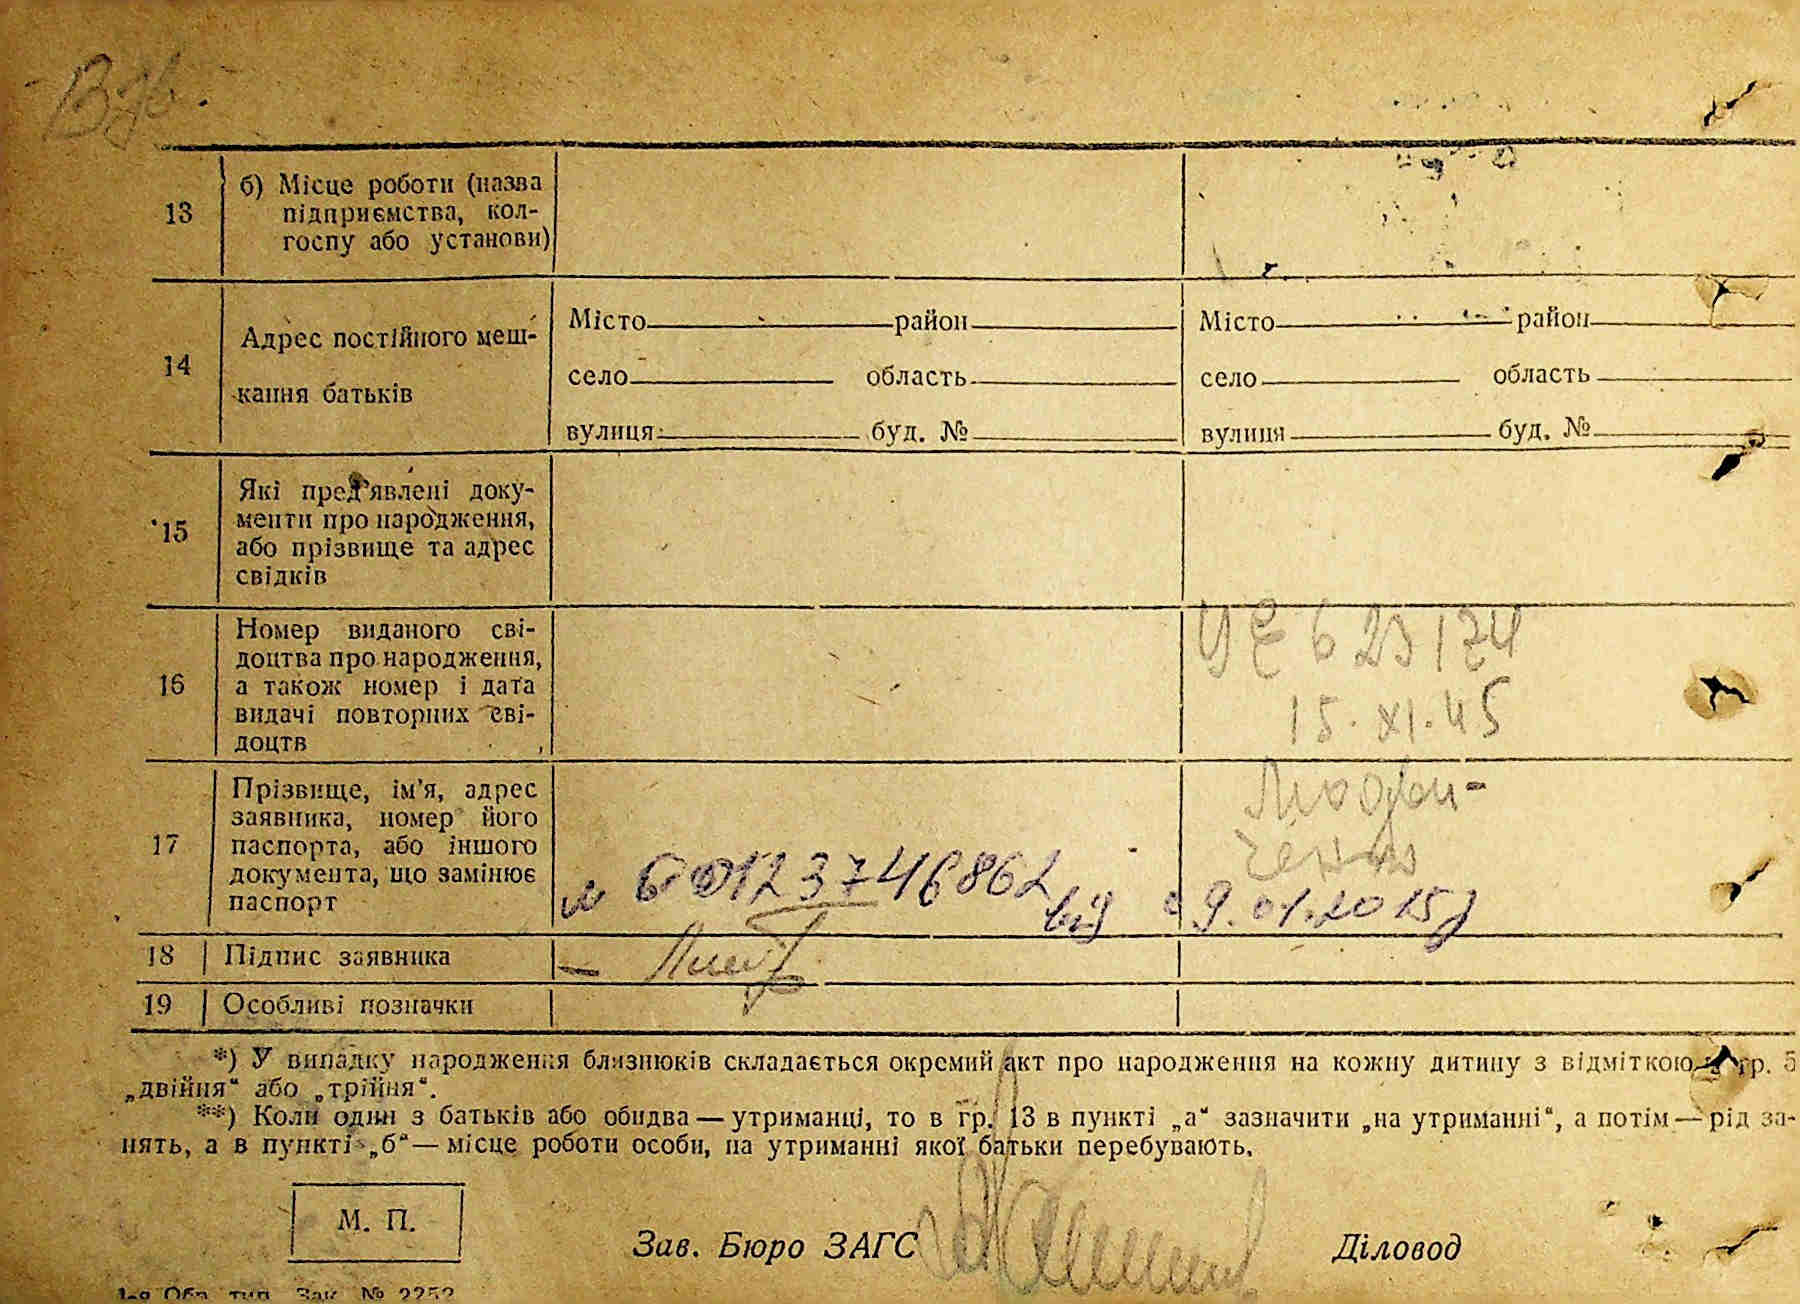 13
б) Місце роботи (назва
підприємства, кол-
госпу або установи)
14
Адрес постійного меш-
кання батьків
Місто район
село область
вулиця буд. №
Місто район
село область
вулиця буд. №
15
Які пред'явлені доку-
менти про народження,
або прізвище та адрес
свідків
16
Номер виданого сві-
доцтва про народження,
а також номер і дата
видачі повторних сві-
доцтв
УЕ 623174
15.XI.45
17
Прізвище, ім'я, адрес
заявника, номер його
паспорта, або іншого
документа, що замінює
паспорт
від 9.01.2015
18 Підпис заявника
19 Особливі позначки
*) У випадку народження близнюків складається окремий акт про народження на кожну дитину з відміткою в гр. 5
„двійня“ або „трійня“.
**) Коли один з батьків або обидва — утриманці, то в гр. 13 в пункті „а“ зазначити „на утриманні“, а потім — рід за-
нять, а в пункті „б“ — місце роботи особи, на утриманні якої батьки перебувають.
М. П.
Зав. Бюро ЗАГС Діловод
1-я Обр. тип. Зак. № 2252